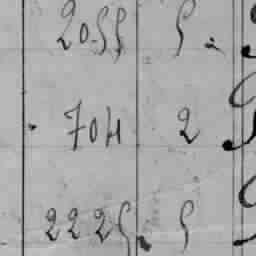 2055 5
704 2
2225 5